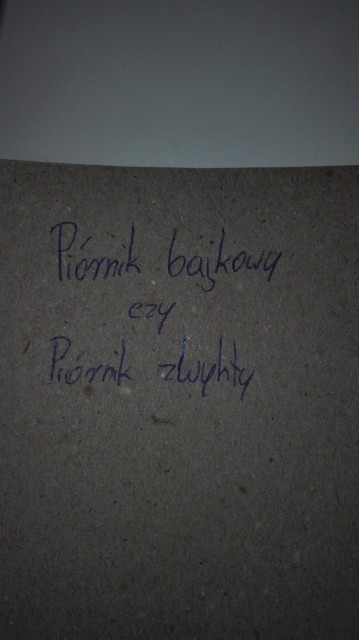 Piórnik bajkowy
czy
Piórnik zwykły